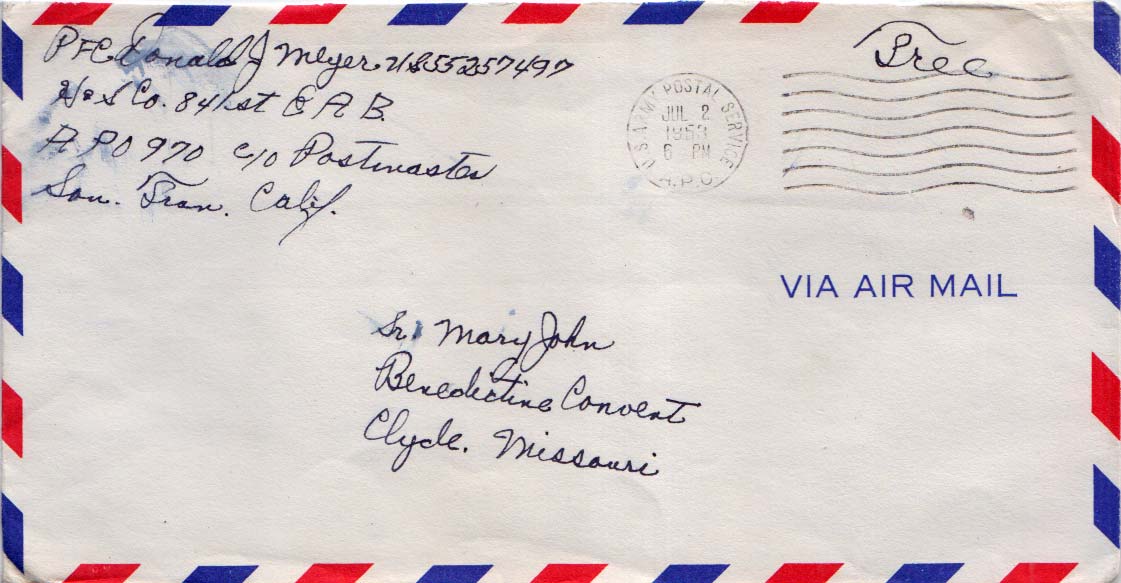 PFC Donald J Meyer US55257497
H & S Co. 841st E A B.
A P O 970 c/o Postmaster
San. Fran. Calif.
Free
U.S. ARMY POSTAL SERVICE
JUL 2
1953
6 PM
A.P.O.
VIA AIR MAIL
Sr. Mary John
Benedictine Convent
Clyde, Missouri